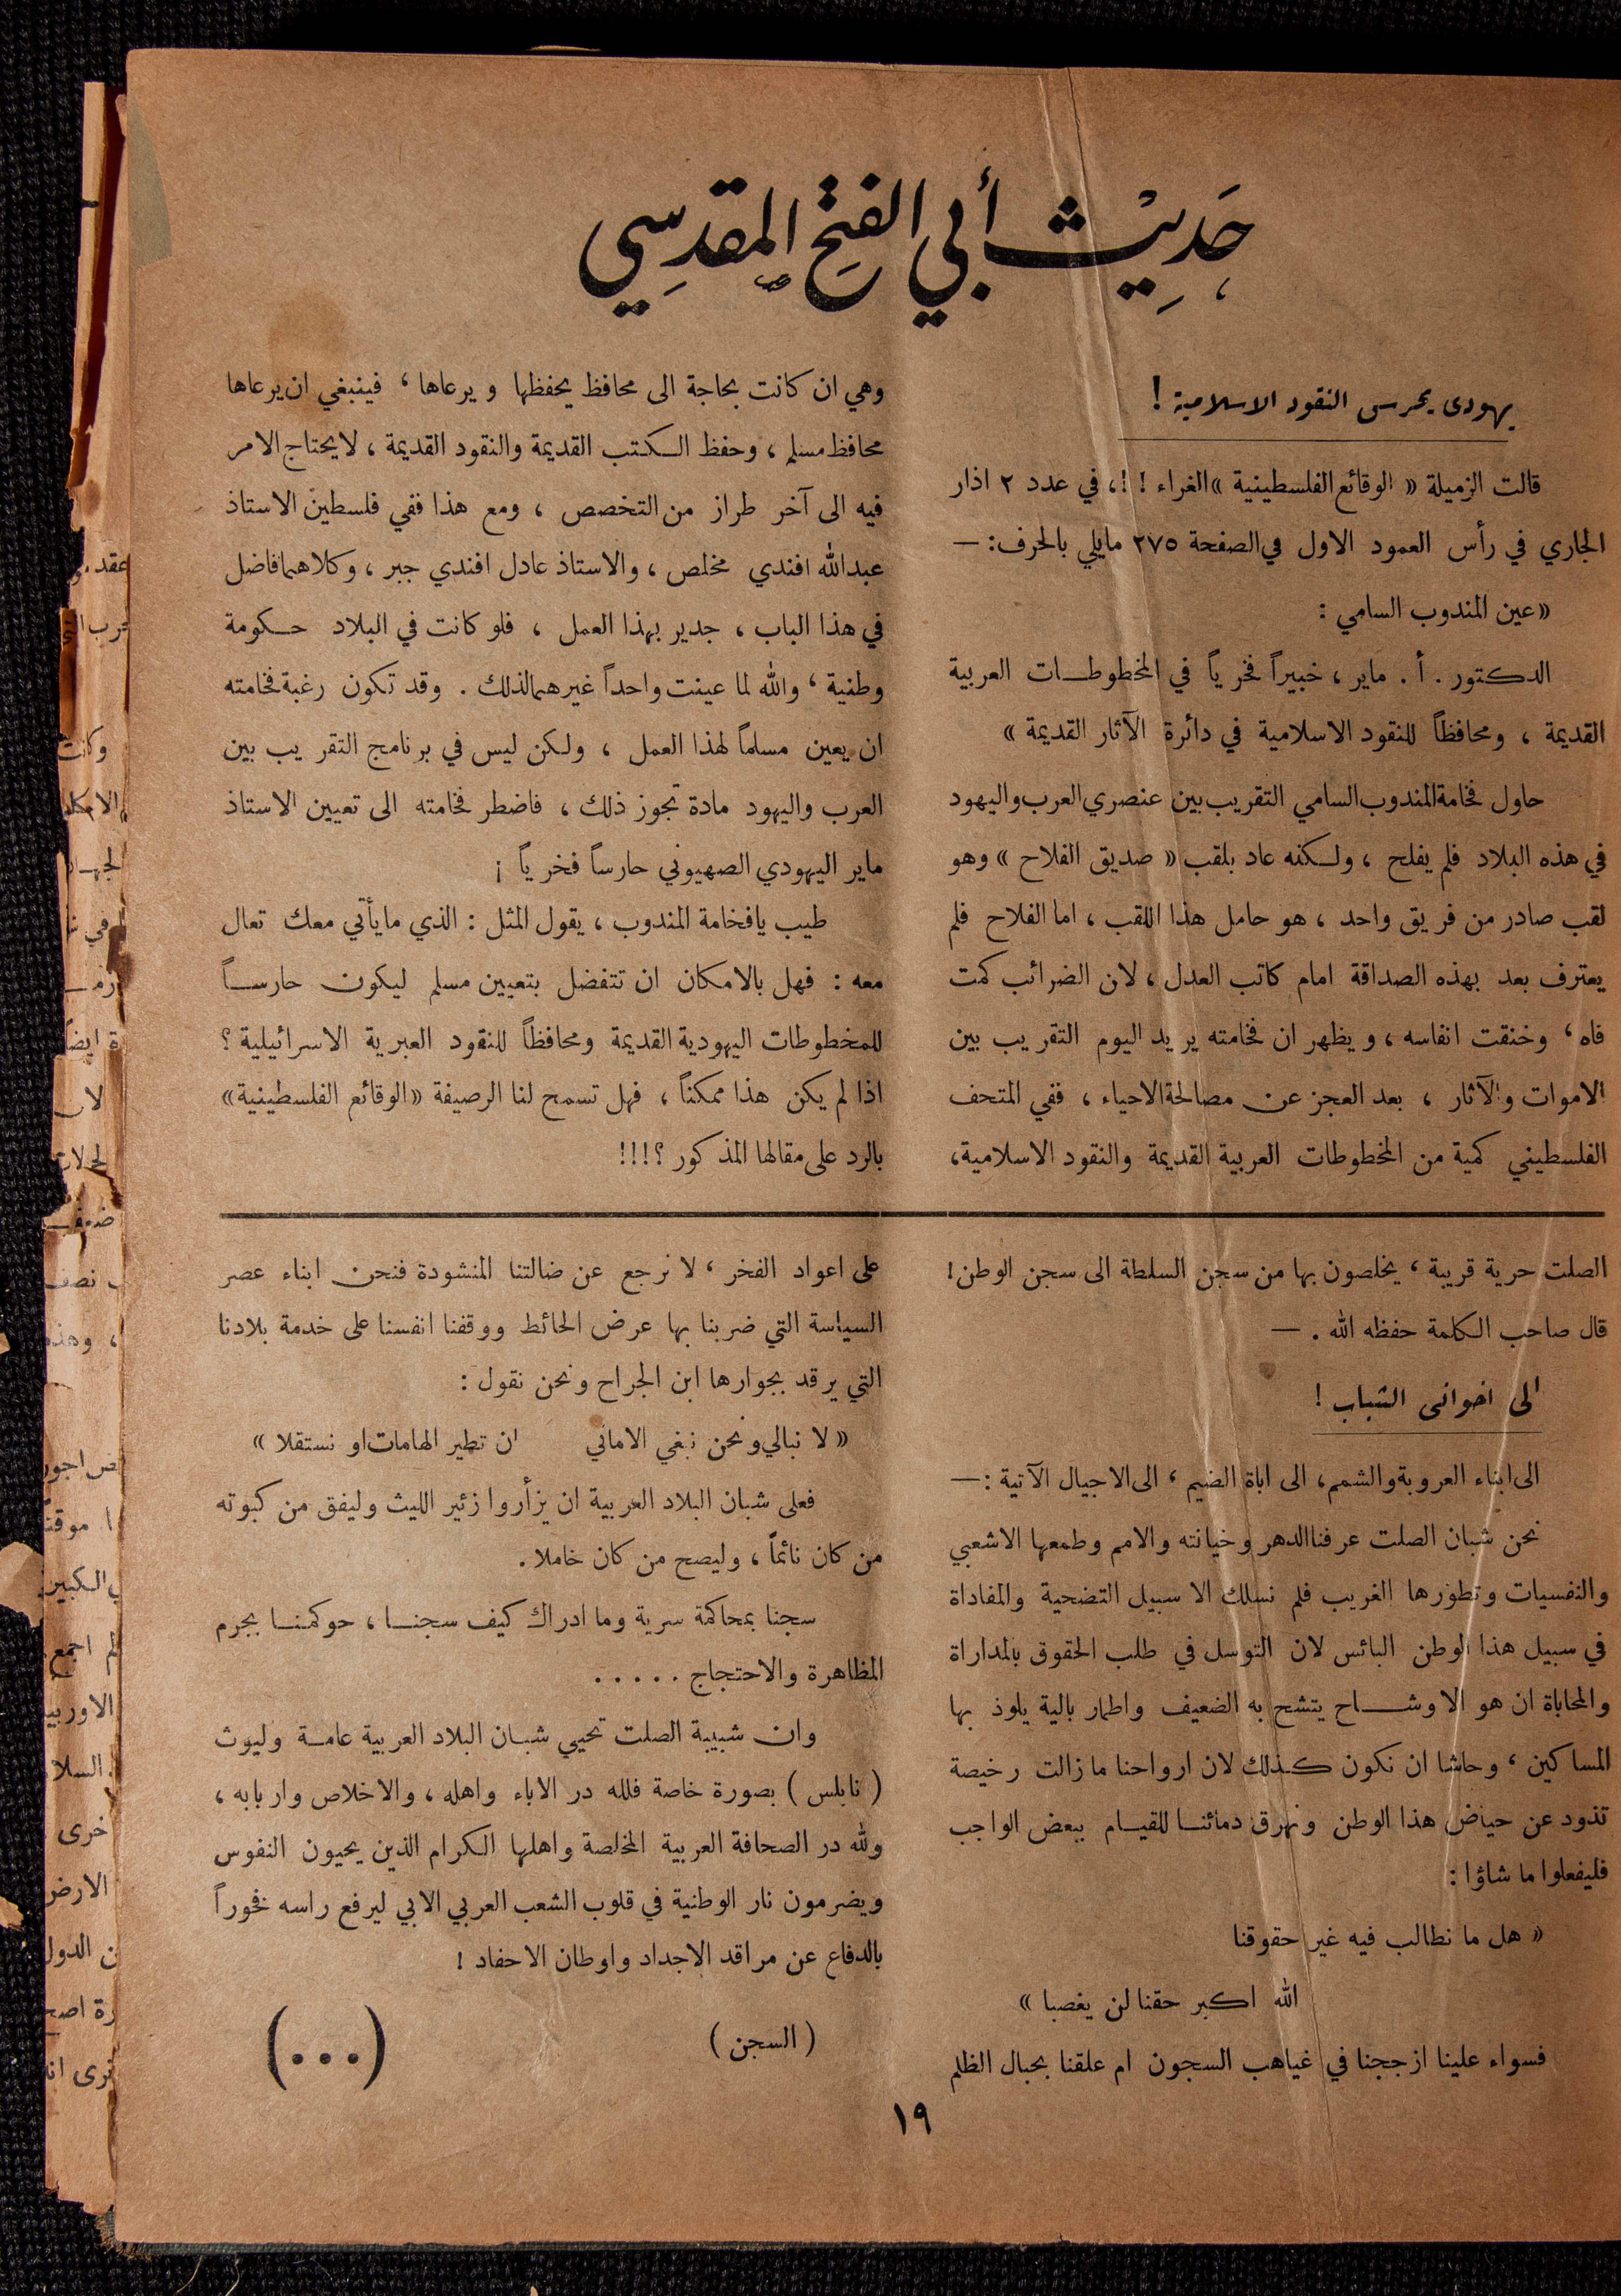 حَدِيْث أبي الفتح المقدسي
يهودى يحرس النقود الاسلامية !
قالت الزميلة « الوقائع الفلسطينية » الغراء ! !، في عدد ٢ اذار
الجاري في رأس العمود الاول في الصفحة ٢٧٥ مايلي بالحرف : —
« عين المندوب السامي :
الدكتور . أ . ماير ، خبيراً فخرياً في المخطوطات العربية
القديمة ، ومحافظاً للنقود الاسلامية في دائرة الآثار القديمة »
حاول فخامة المندوب السامي التقريب بين عنصري العرب واليهود
في هذه البلاد فلم يفلح ، ولكنه عاد بلقب « صديق الفلاح » وهو
لقب صادر من فريق واحد ، هو حامل هذا اللقب ، اما الفلاح فلم
يعترف بعد بهذه الصداقة امام كاتب العدل ، لان الضرائب كمت
فاه ، وخنقت انفاسه ، ويظهر ان فخامته يريد اليوم التقريب بين
الاموات والآثار ، بعد العجز عن مصالحة الاحياء ، ففي المتحف
الفلسطيني كمية من المخطوطات العربية القديمة والنقود الاسلامية،
وهي ان كانت بحاجة الى محافظ يحفظها ويرعاها ، فينبغي ان يرعاها
محافظ مسلم ، وحفظ الكتب القديمة والنقود القديمة ، لا يحتاج الامر
فيه الى آخر طراز من التخصص ، ومع هذا ففي فلسطين الاستاذ
عبدالله افندي مخلص ، والاستاذ عادل افندي جبر ، وكلاهما فاضل
في هذا الباب ، جدير بهذا العمل ، فلو كانت في البلاد حكومة
وطنية ، والله لما عينت واحداً غيرهما لذلك . وقد تكون رغبة فخامته
ان يعين مسلماً لهذا العمل ، ولكن ليس في برنامج التقريب بين
العرب واليهود مادة تجوز ذلك ، فاضطر فخامته الى تعيين الاستاذ
ماير اليهودي الصهيوني حارساً فخرياً ¡
طيب يا فخامة المندوب ، يقول المثل : الذي ما يأتي معك تعال
معه : فهل بالامكان ان تتفضل بتعيين مسلم ليكون حارساً
للمخطوطات اليهودية القديمة ومحافظاً للنقود العبرية الاسرائيلية ؟
اذا لم يكن هذا ممكناً ، فهل تسمح لنا الرصيفة «الوقائع الفلسطينية»
بالرد على مقالها المذكور ؟!!!
الصلت حرية قريبة ، يخلصون بها من سجن السلطة الى سجن الوطن!
قال صاحب الكلمة حفظه الله . —
الى اخوانى الشباب !
الى ابناء العروبة والشمم، الى اباة الضيم ، الى الاجيال الآتية : —
نحن شبان الصلت عرفنا الدهر وخيانته والامم وطمعها الاشعبي
والنفسيات وتطورها الغريب فلم نسلك الا سبيل التضحية والمفاداة
في سبيل هذا الوطن البائس لان التوسل في طلب الحقوق بالمداراة
والمحاباة ان هو الا وشاح يتشح به الضعيف واطمار بالية يلوذ بها
المساكين ، وحاشا ان نكون كذلك لان ارواحنا ما زالت رخيصة
تذود عن حياض هذا الوطن ونهرق دمائنا للقيام ببعض الواجب
فليفعلوا ما شاؤا :
« هل ما نطالب فيه غير حقوقنا
الله اكبر حقنا لن يغصبا »
فسواء علينا ازججنا في غياهب السجون ام علقنا بحبال الظلم
على اعواد الفخر ، لا نرجع عن ضالتنا المنشودة فنحن ابناء عصر
السياسة التي ضربنا بها عرض الحائط ووقفنا انفسنا على خدمة بلادنا
التي يرقد بجوارها ابن الجراح ونحن نقول :
« لا نبالي ونحن نبغي الاماني ان تطير الهامات او نستقلا »
فعلى شبان البلاد العربية ان يزأروا زئير الليث وليفق من كبوته
من كان نائماً ، وليصح من كان خاملا .
سجنا بمحاكمة سرية وما ادراك كيف سجنا ، حوكمنا بجرم
المظاهرة والاحتجاج . . . . .
وان شبيبة الصلت تحيي شبان البلاد العربية عامة وليوث
( نابلس ) بصورة خاصة فلله در الاباء واهله ، والاخلاص واربابه ،
ولله در الصحافة العربية المخلصة واهلها الكرام الذين يحيون النفوس
ويضرمون نار الوطنية في قلوب الشعب العربي الابي ليرفع راسه فخوراً
بالدفاع عن مراقد الاجداد واوطان الاحفاد !
( السجن ) (...)
١٩